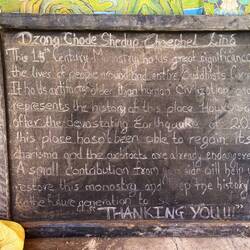 Dzong Chode Shedup Choephel Ling
This 15th Century Monastry holds great significance
the lives of people around and entire Buddhists
It holds artifacts older than human Civilization and
represents the history of this place. However
after the devastating Earthquake of 20
this place hasn't been able to regain its
charisma and the artifacts are already endangered
A small contribution from your side will help
restore this monastry and keep the history
to the future generation to
"THANKING YOU!!!"